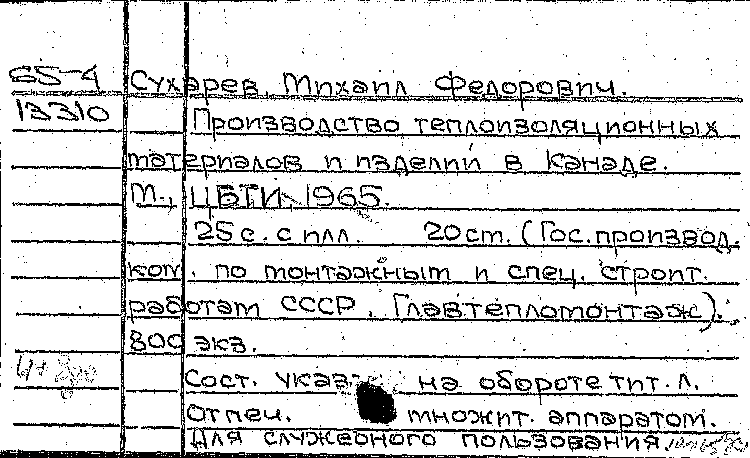 65-4 Сухарев, Михаил Федорович.
13310 Производство теплоизоляционных
материалов и изделий в Канаде.
М., ЦБТИ, 1965.
25 с. с илл. 20 см. (Гос. производ.
ком. по монтажным и спец. строит.
работам СССР. Главтепломонтаж).
800 экз.
Сост. указ. на обороте тит. л.
Отпеч. множит. аппаратом.
Для служебного пользования